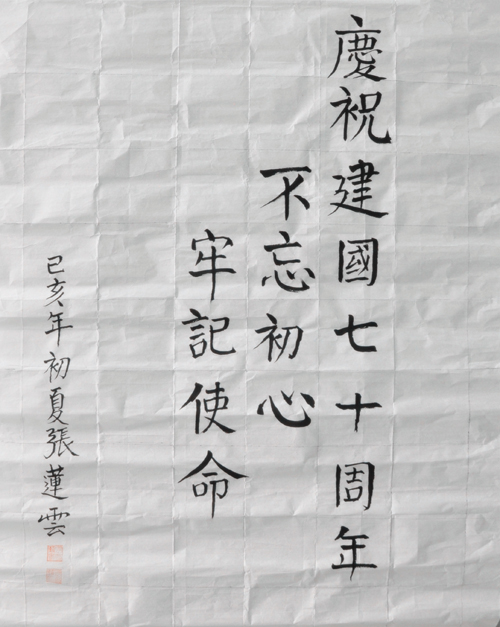 慶祝建國七十周年
不忘初心
牢記使命
己亥年初夏張蓮雲